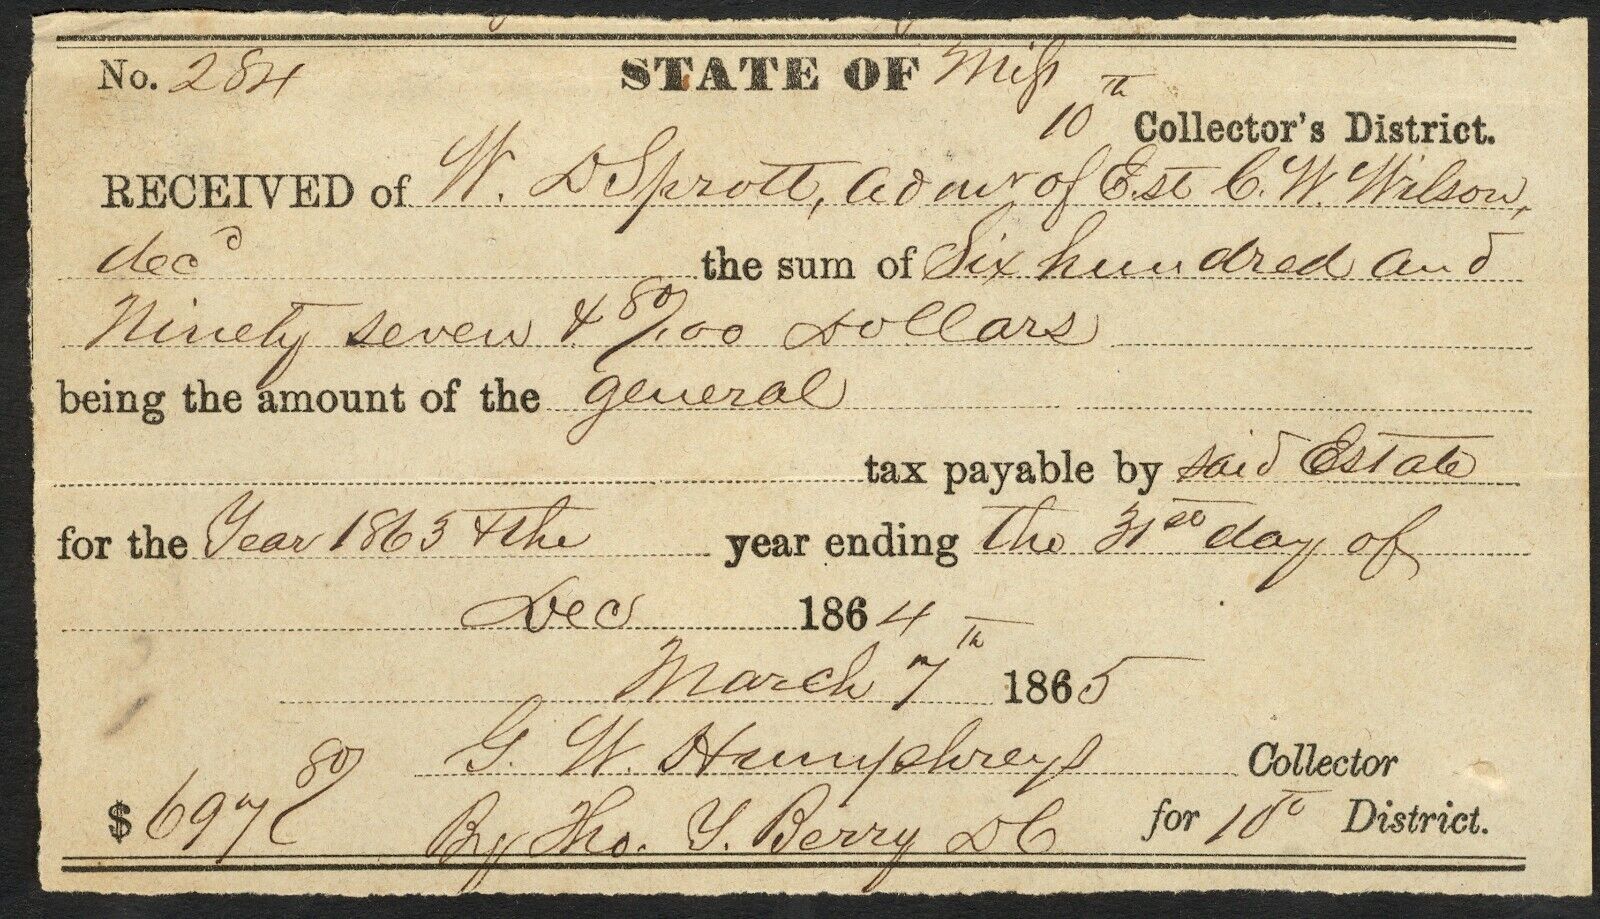 No. 284 STATE OF Miss
10th Collector's District.
RECEIVED of W. D Sprott, admr of Est C. W. Wilson,
decd the sum of Six hundred and
Ninety seven & 80/100 Dollars
being the amount of the general
tax payable by said Estate
for the Year 1863 & the year ending the 31st day of
Dec 1864
March 7th 1865
G. W. Humphreys Collector
$697 80/ By Tho. Y. Berry DC for 10th District.